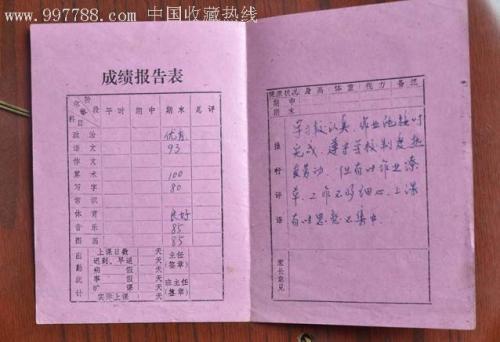 www.997788.com 中国收藏热线
成绩报告表
阶段
平时 期中 期末 总评
科目
政治 优秀
语文 93
作文
算术 100
写字 80
常识
体育 良好
音乐 85
图画 85
出勤统计
上课日数 天
迟到、早退 天
病假 天
事假 天
旷课 天
实际上课 天
主任(签章)
班主任(签章)
健康状况 身高 体重 视力 备注
期中
期末
操行评语
学习较认真,作业能按时
完成,遵守学校制度,热
爱劳动,但有时作业潦
草,工作不够细心,上课
有时思想不集中
家长意见